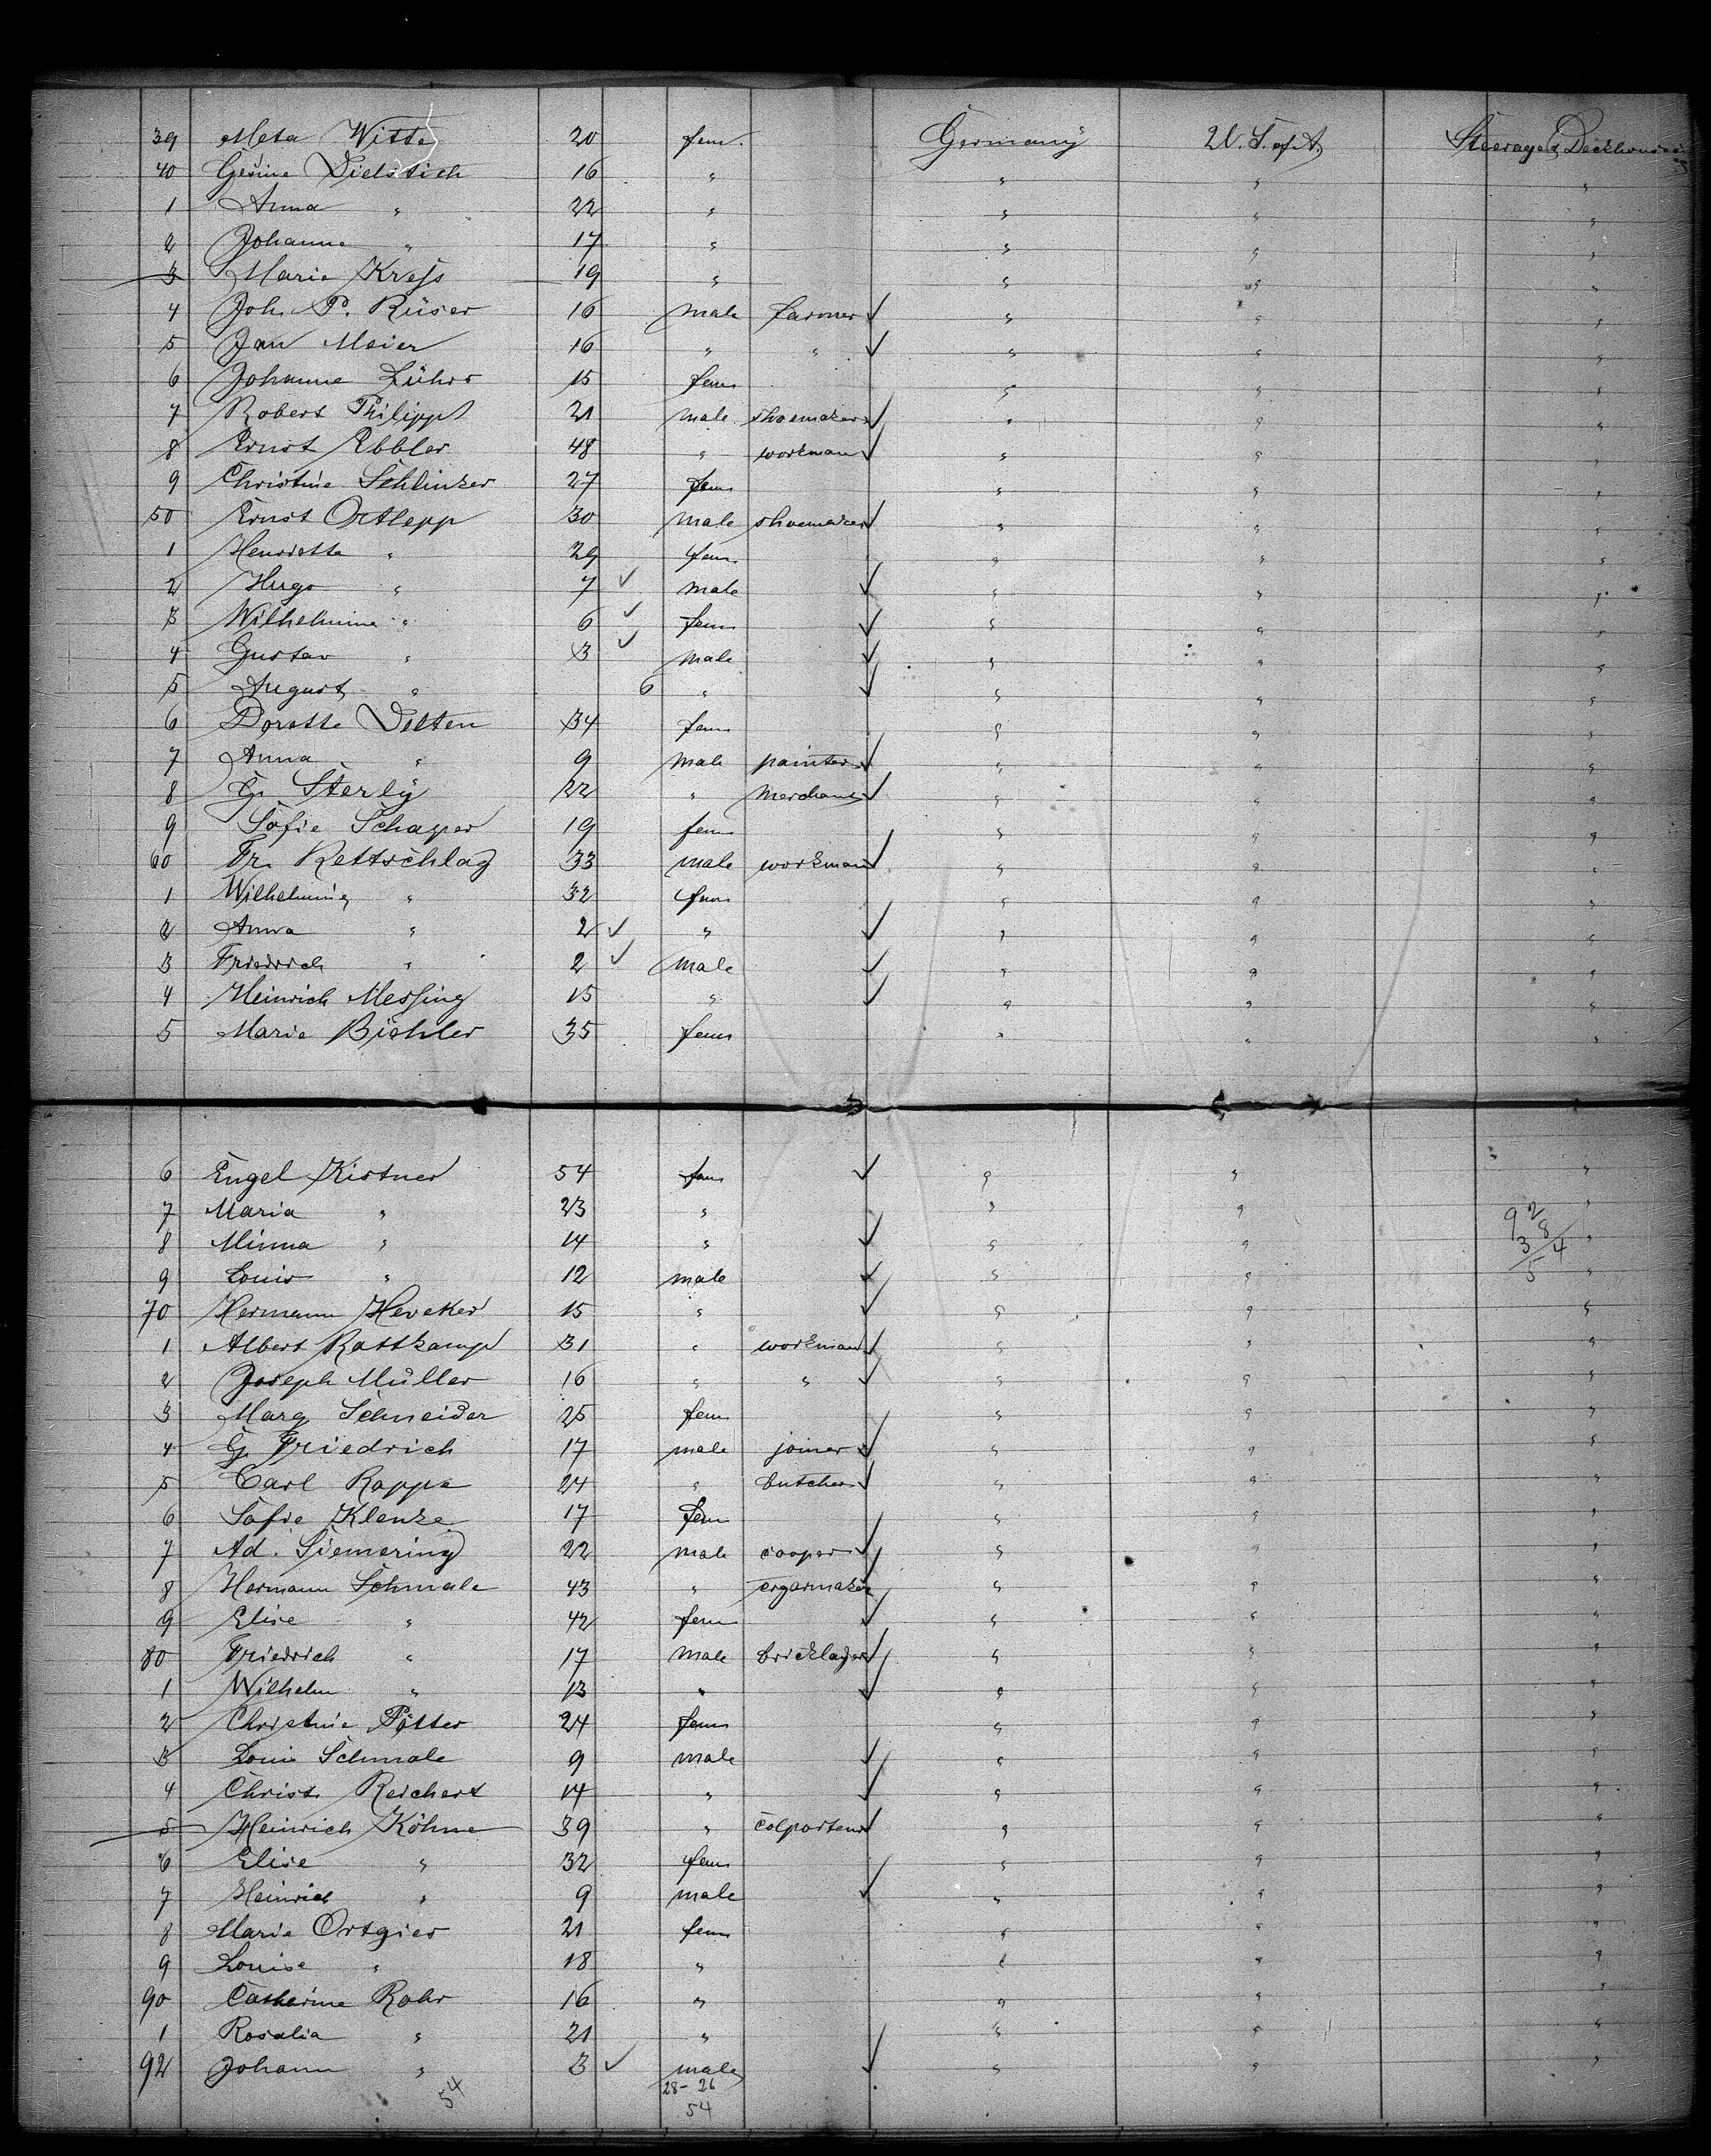 39 Meta Witte 20 fem. Germany U. S. of A. Steerage & Deckhouse
40 Gesine Dielstich 16 " " " "
1 Anna " 22 " " " "
2 Johanne " 17 " " " "
3 Marie Kress 19 " " " "
4 Joh. P. Rüser 16 male farmer ✓ " " "
5 Jan Meier 16 " " ✓ " " "
6 Johanne Lührs 15 fem " " "
7 Robert Philipp 21 male shoemaker ✓ " " "
8 Ernst Ebbler 48 " workman ✓ " " "
9 Christine Schlinker 27 fem " " "
50 Ernst Ortlepp 30 male shoemaker ✓ " " "
1 Henriette " 29 fem " " "
2 Hugo " 7 ✓ male ✓ " " "
3 Wilhelmine " 6 ✓ fem ✓ " " "
4 Gustav " 3 ✓ male ✓ " " "
5 August " 6 " ✓ " " "
6 Dorette Delten 34 fem " " "
7 Anna " 9 male painter ✓ " " "
8 G. Sterly 22 " merchant ✓ " " "
9 Sofie Schaper 19 fem " " "
60 Fr. Rettschlag 33 male workman ✓ " " "
1 Wilhelmine " 32 fem " " "
2 Anna " 2 ✓ " ✓ " " "
3 Friedrich " 2 ✓ male ✓ " " "
4 Heinrich Messing 15 " ✓ " " "
5 Marie Bichler 35 fem " " "
6 Engel Kistner 54 fem ✓ " " "
7 Maria " 23 " " " "
8 Minna " 14 " ✓ " " "
9 Louis " 12 male ✓ " " "
92
38
54
70 Hermann Heveker 15 " ✓ " " "
1 Albert Rattkamp 31 " workman ✓ " " "
2 Joseph Müller 16 " " ✓ " " "
3 Marg. Schneider 25 fem " " "
4 G. Friedrich 17 male joiner ✓ " " "
5 Carl Rappe 24 " butcher ✓ " " "
6 Sofie Klenke 17 fem " " "
7 Ad. Siemering 22 male cooper ✓ " " "
8 Hermann Schmale 43 " cigarmaker " " "
9 Elise " 42 fem ✓ " " "
80 Friedrich " 17 male bricklayer ✓ " " "
1 Wilhelm " 13 " ✓ " " "
2 Christine Pötter 24 fem " " "
3 Louis Schmale 9 male ✓ " " "
4 Christ. Reichert 14 " ✓ " " "
5 Heinrich Köhne 39 " colporteur ✓ " " "
6 Elise " 32 fem " " "
7 Heinrich " 9 male ✓ " " "
8 Marie Ortgies 21 fem " " "
9 Louise " 18 " " " "
90 Catharine Rohr 16 " " " "
1 Rosalia " 21 " " " "
92 Johann " 3 ✓ male ✓ " " "
54 28 - 26
54